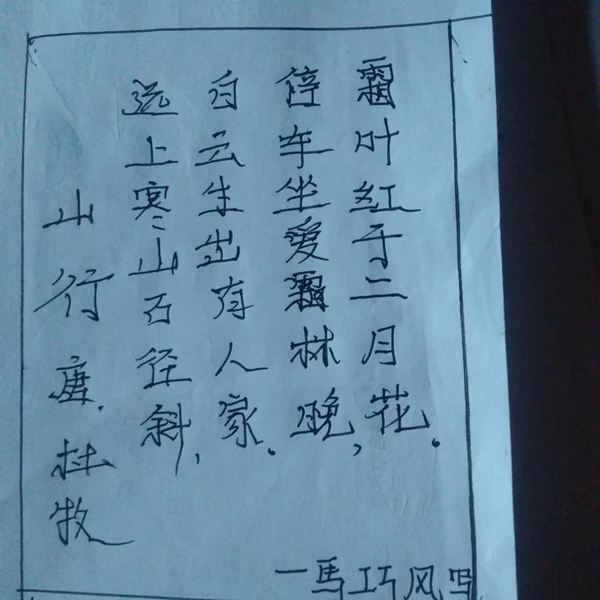 山行 唐.杜牧
远上寒山石径斜,
白云生出有人家.
停车坐爱霜林晚,
霜叶红于二月花.
一馬巧风写